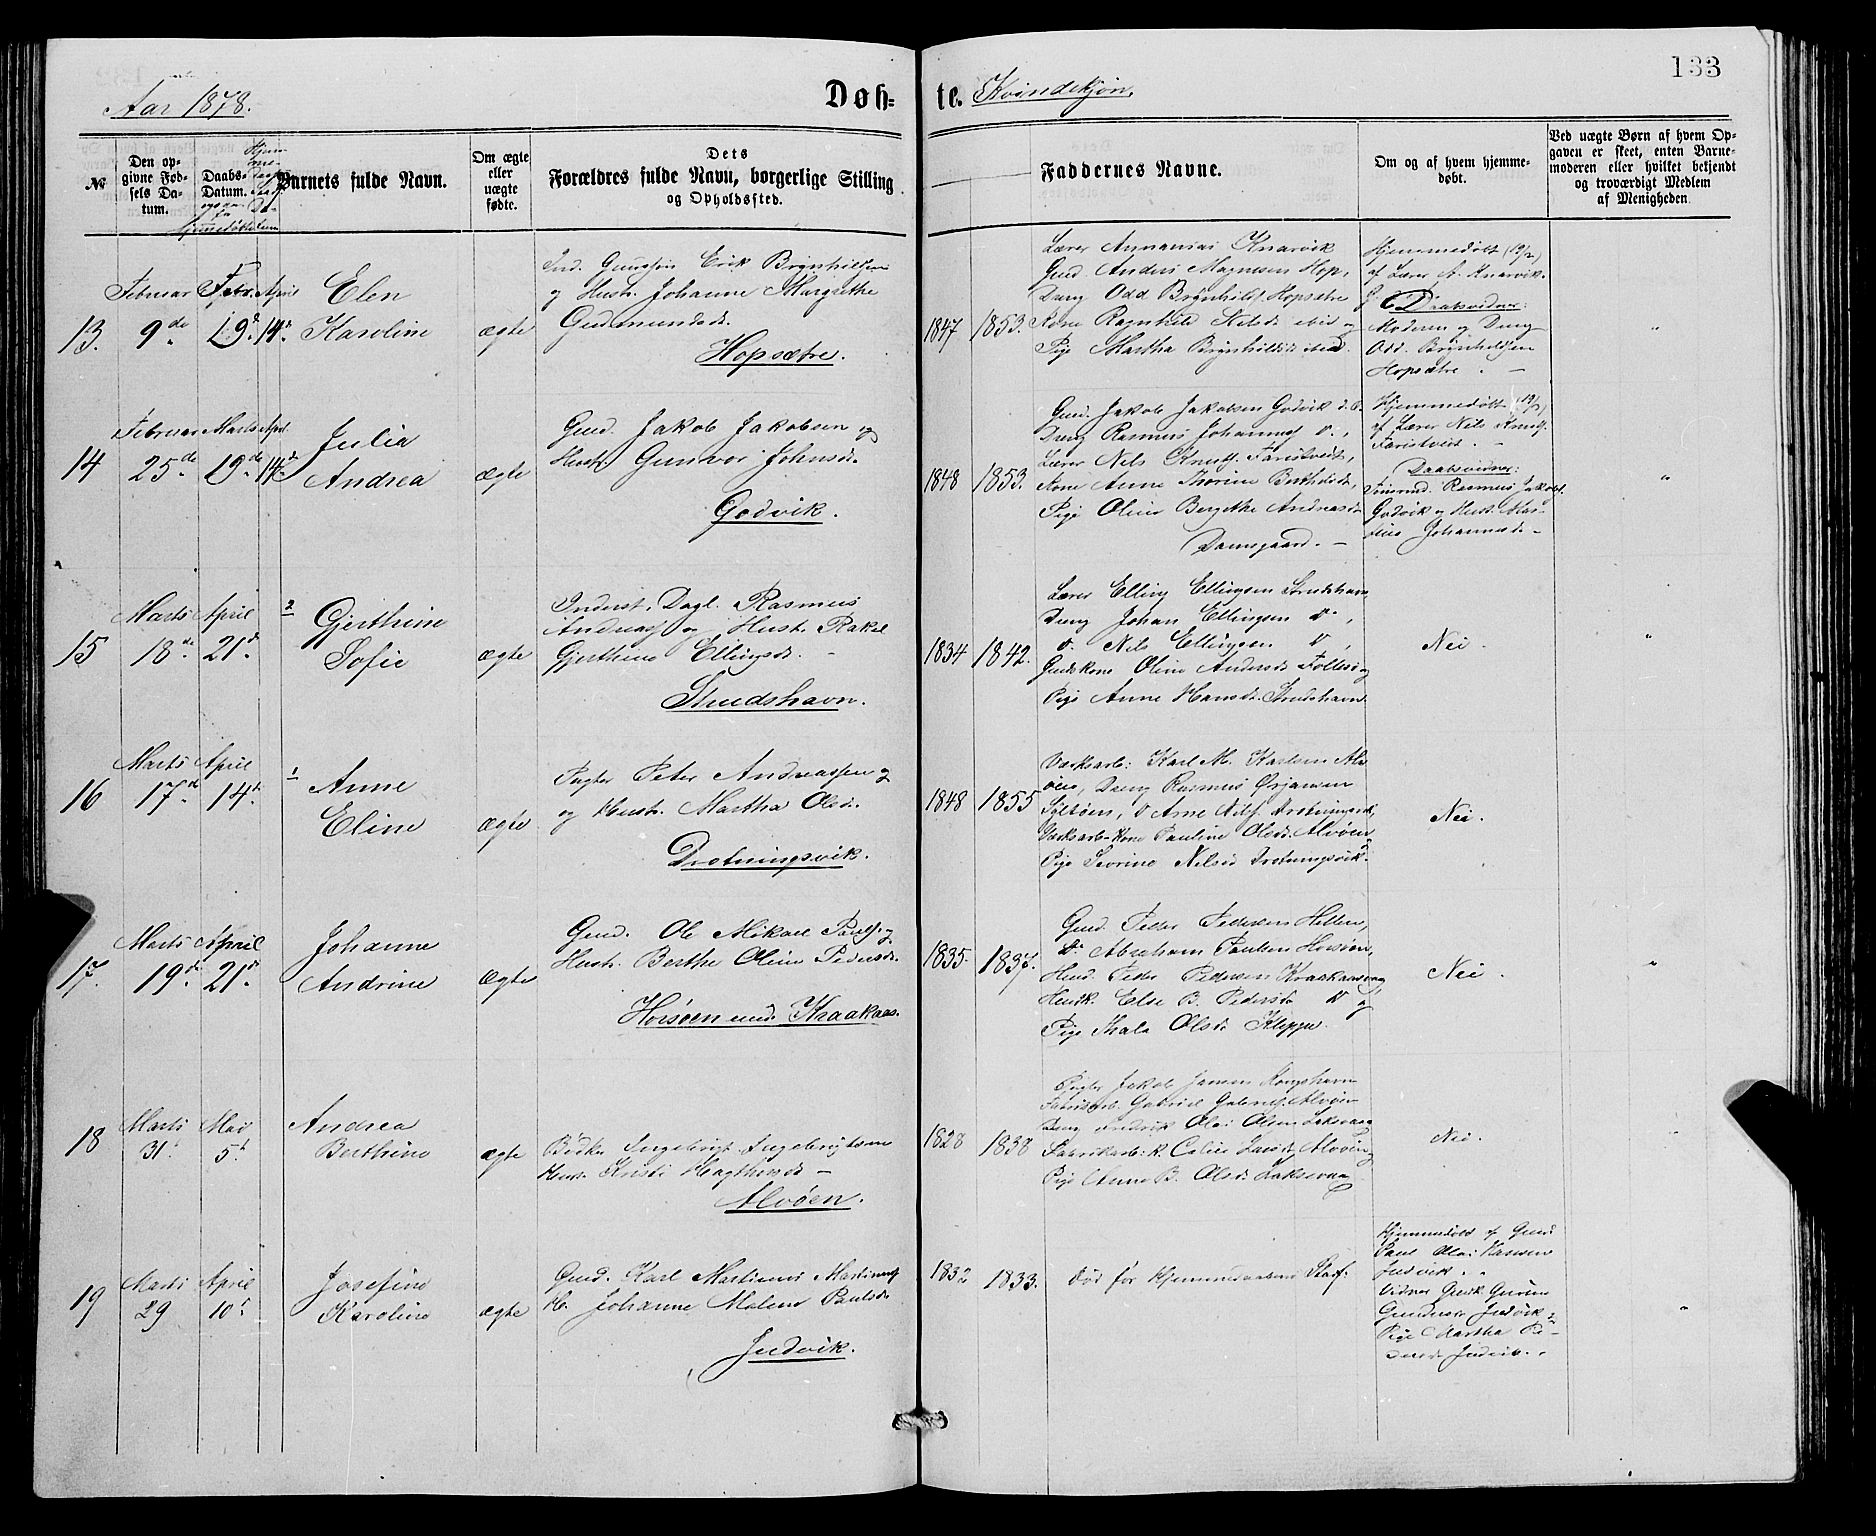 133
Aar 1878.
Døb-
te.
Kvindekjøn.
№
Den op-
givne Fød-
sels Da-
tum.
Daabs-
Datum.
Barnets fulde Navn.
Om ægte
eller
uægte
fødte.
Dets
Forældres fulde Navn, borgerlige Stilling
og Opholdssted.
Faddernes Navne.
Om og af hvem hjemme-
døbt.
Ved uægte Børn af hvem Op-
gaven er skeet, enten Barne-
moderen eller hvilket bekjendt
og troværdigt Medlem
af Menigheden.
13.
Februar
9de
Febr.
19d
April
14d
Elen
Karoline
ægte
Erik Brynhilsen
og Hustr. Johanne Margrethe
Gudmundsd.
Hopsætre.
1847
1853.
Lærer Annanias Knarvik
Gmd Anders Magnesen Hop,
Dreng Odd Brynhilds Hopsætre
Kone Ragnhild Nilsd. ibid og
Pige Martha Brynhildsd. ibid.
Hjemmedøbt (19/2)
af Lærer A. Knarvik.
Daabsvidner:
Moderen og Dreng
Odd. Brynhildsen
Hopsætre. —
"
14
Februar
25de
Marts
19de
April
14d
Julia
Andrea
ægte
Gmd. Jakob Jakobsen og
Hustr. Gunvor Johnsd.
Godvik.
1848
1853.
Gmd. Jakob Jakobsen Godvik
Dreng Rasmus Johannes d.,
Lærer Nils Knuts. Faristveit,
Kone Anne Thorine Bertheld.,
Pige Oline Bergithe Andreasd.
Damsgaard. —
Hjemmedøbt (19/3)
af Lærer Nils Knuts.
Faristveit. —
Daabsvidner:
Rasmus Jakobs.
Godvik og Hust.
Johannesd. —
"
15
Marts
18de
April
21d
2
Gjerthine
Sofie
ægte
Inderst, Dagl. Rasmus
Andreass og Hust. Rakel
Gjerthine Ellingsd. —
Strudshavn.
1834
1842.
Lærer Elling Ellingsen Strudshavn
Dreng Johan Ellingsen d.,
d. Nils Ellingsen d.,
Gmdskone Oline Andersd. Follesø
Pige Anne Hansd. Strudshavn
Nei.
"
16
Marts
17d
April
14d
1
Anne
Eline
ægte
Pagter Peter Andreassen og
og Hustr. Martha Olsd.
Drotningsvik.
1848
1855
Værksarb: Karl M. Karlsen Al-
øen, Dreng Rasmus Ørjansen
d Arne Nils. Drotningsvik,
Værksarb-Kone Pauline Olsd. Alvøen
Pige Severine Nilsd Drotningsvik.
Nei.
17.
Marts
19d
April
21d
Johanne
Andrine
Ægte
Gmd. Ole Mikael Pauls. og
Hustr. Berthe Oline Pedersd.
Horsøen und. Kraakaas.
1835
1837.
Gmd. Peder Pedersen Hillren,
d. Abraham Paulsen Horsøen,
Peder Pedersen
Else B. Pedersd. d og
Pige Thala Olsd. Kleppe.
Nei.
"
18
Marts
31
Mai
5t
Andrea
Berthine
ægte
Bødker Ingebrigt Ingebrigtsen
Hust. Kristi Hagthorsd. —
Alvøen.
1828
1838
Pagter Jakob Jansen Kongshavn
Gabriel Gabriels. Alvøen
Dreng Fredrik Olai Olsen Laksevaag
Fabrikarb. K. Celie Larsd. Alvøen
Pige Anne B. Olsd. Laksevaag.
Nei.
"
19
Marts
29
April
10d
Josefine
Karoline
ægte
Gmd. Karl Martinus Martinus
H. Johanne Malene Paulsd.
Judvik.
1832
1833.
død før Hjemmedaabens Stadf.
Hjemmedøbt af Gmd.
Paul Olai Hansen
Judvik.
Vidner
Judvik
Pige Martha Pe-
dersd. Judvik.
"